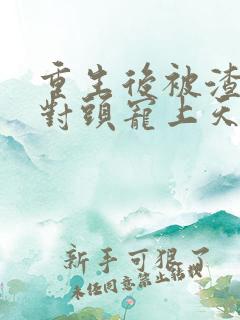 重生後被渣
對頭寵上天
新手可狠了
未經同意禁止轉載